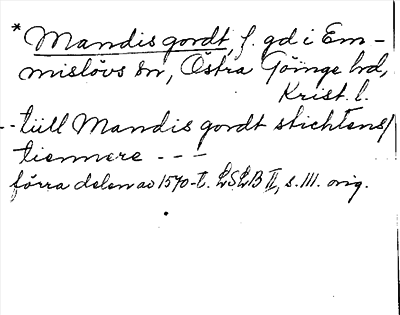 * Mandis gordt, f. gd i Em-
mislövs sn, Östra Göinge hd,
Krist. l.
- - tiill Mandis gordt stichtens/
tiennere - - -
förra delen av 1570-t. LSLB II, s. 111. orig.